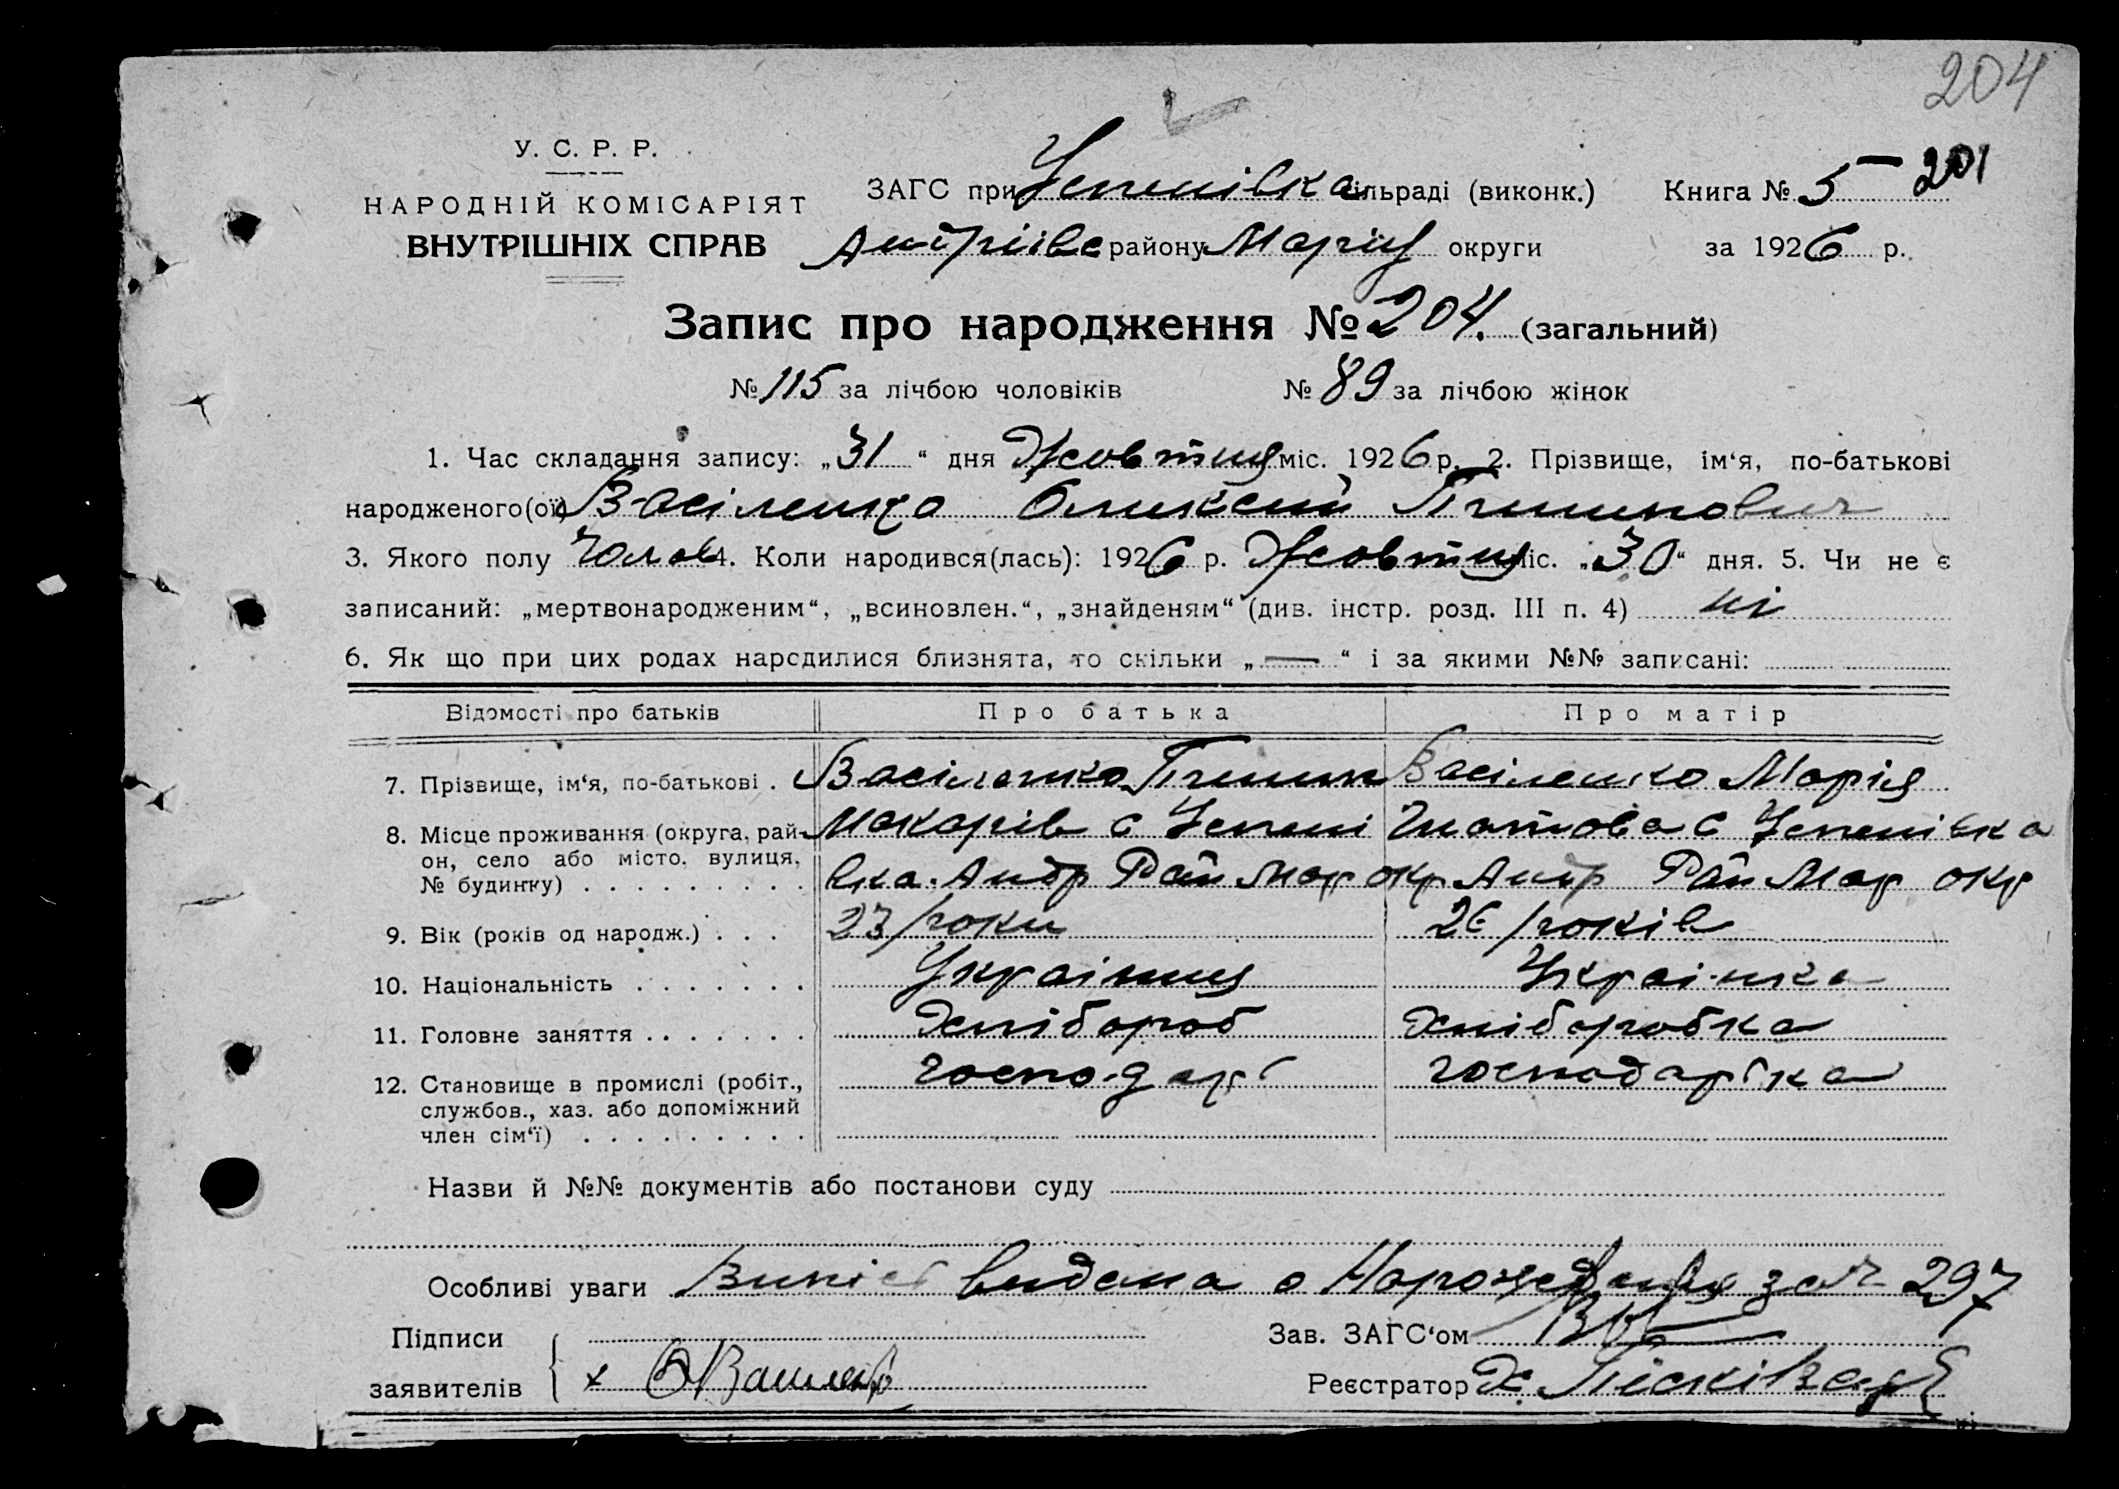 204
У. С. Р. Р.
НАРОДНІЙ КОМІСАРІЯТ
ВНУТРІШНІХ СПРАВ
ЗАГС при Успенівка сільраді (виконк.)
Андріївс району Маріу округи
Книга № 5 201
за 1926 р.
Запис про народження № 204. (загальний)
№ 115 за лічбою чоловіків № 89 за лічбою жінок
1. Час складання запису: „31“ дня Жовтня міс. 1926 р. 2. Прізвище, ім‘я, по-батькові
народженого(ої) Васіленко Оликсій Пилипович
3. Якого полу Чолов 4. Коли народився(лась): 1926 р. Жовтня міс. „30“ дня. 5. Чи не є
записаний: „мертвонародженим“, „всиновлен.“, „знайденям“ (див. інстр. розд. III п. 4) ні
6. Як що при цих родах народилися близнята, то скільки „—“ і за якими №№ записані:
Відомості про батьків Про батька Про матір
7. Прізвище, ім‘я, по-батькові . Васіленко Пилип Васіленко Марія
8. Місце проживання (округа, рай- Макарів с Успені Гнатова с Успенівка
он, село або місто, вулиця,
№ будинку) . . . . . . . . . вка. Андр Рай Мар окр Андр Рай Мар окр
9. Вік (років од народж.) . . . 23 роки 26 років
10. Національність . . . . . . . Українец Українка
11. Головне заняття . . . . . . . Хлібороб Хліборобка
12. Становище в промислі (робіт., господарь господарька
службов., хаз. або допоміжний
член сім‘ї) . . . . . . . . .
Назви й №№ документів або постанови суду
Особливі уваги Випіс видана о Народження за № 297
Підписи
заявителів
Зав. ЗАГС‘ом
Реєстратор